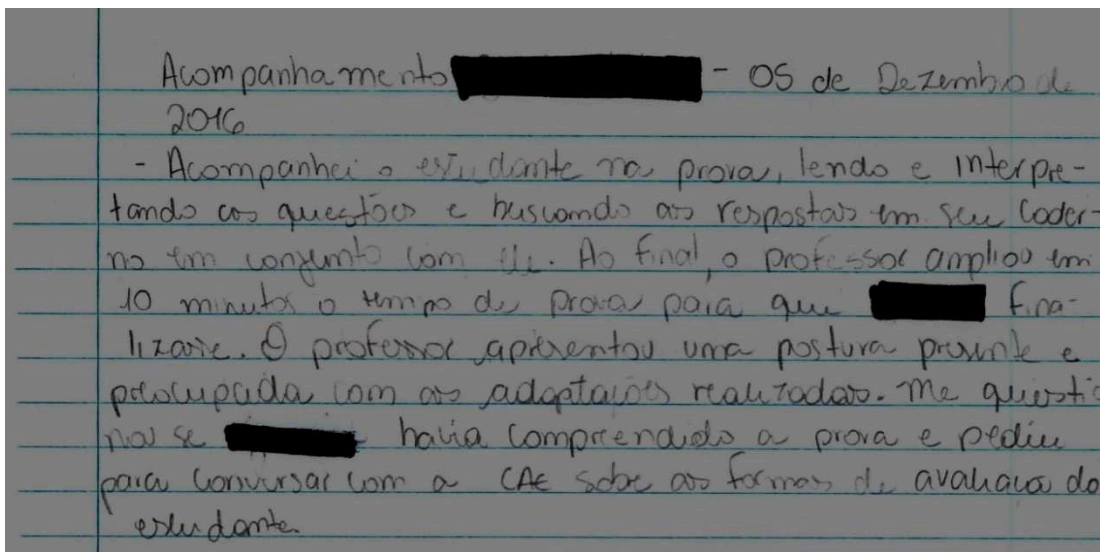 Acompanhamento - 05 de Dezembro de
2016
- Acompanhei o estudante na prova, lendo e interpre-
tando as questões e buscando as respostas em seu cader-
no em conjunto com ele. Ao final, o professor ampliou em
10 minutos o tempo de prova para que fina-
lizasse. O professor apresentou uma postura presente e
preocupada com as adaptações realizadas. Me questio
nou se havia compreendido a prova e pediu
para conversar com a CAE sobe as formas de avaliacao do
estudante.